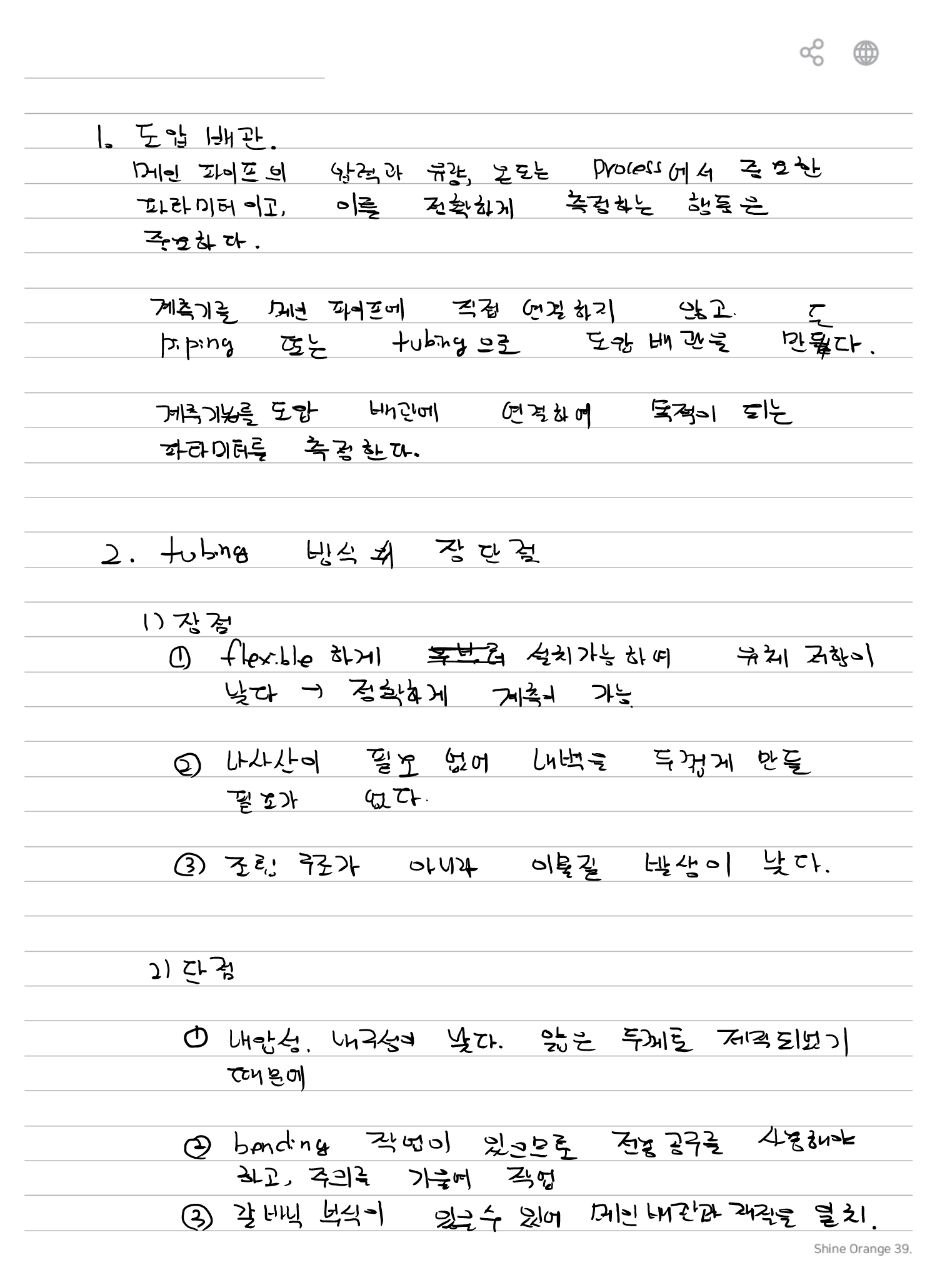 1. 도압 배관.
메인 파이프의 압력과 유량, 온도는 process에서 중요한
파라미터이고, 이를 정확하게 측정하는 행동은
중요하다.
계측기를 메인 파이프에 직접 연결하지 않고. 도
piping 또는 tubing으로 도압 배관을 만든다.
계측기를 도압 배관에 연결하여 목적이 되는
파라미터를 측정한다.
2. tubing 방식의 장단점
1) 장점
① flexible 하게 설치가능하며 유체 저항이
낮다 → 정확하게 계측이 가능
② 나사산이 필요 없어 내벽을 두껍게 만들
필요가 없다.
③ 조립 구조가 아니라 이물질 발생이 낮다.
2) 단점
① 내압성, 내구성이 낮다. 얇은 두께로 제작되었기
때문에
② bending 작업이 있으므로 전용 공구를 사용해야
하고, 주의를 기울여 작업
③ 갈바닉 부식이 있을 수 있어 메인 배관과 재질을 일치.
Shine Orange 39.